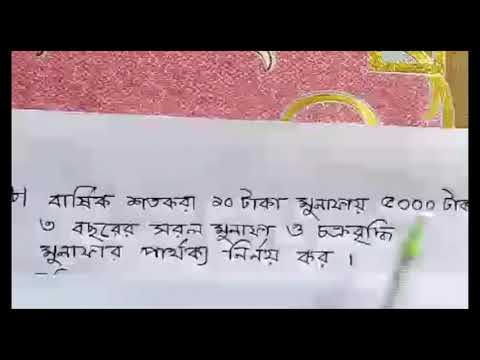 বার্ষিক শতকরা ১০ টাকা মুনাফায় ৫০০০ টাকা
৩ বছরের সরল মুনাফা ও চক্রবৃদ্ধি
মুনাফার পার্থক্য নির্নয় কর ।